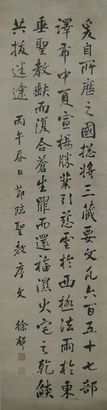 爰自所歷之國總將三藏要文凡六百五十七部
譯布中夏宣揚勝業引慈雲於西極法雨於東
垂聖教缺而復全蒼生罪而還福濕火宅之乾燄
共拔迷途 丙午春日 節臨聖教序文 徐郙